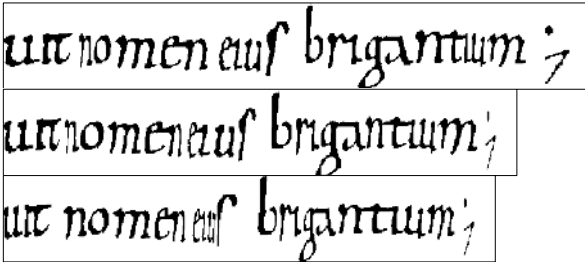 uit nomen eius brigantium ;
uit nomen eius brigantium ;
uit nomen eius brigantium ;